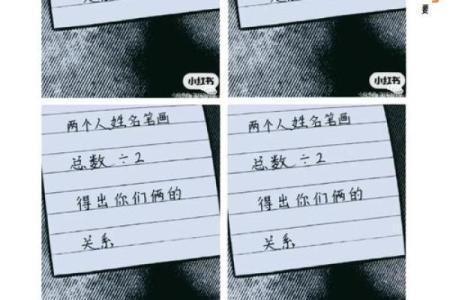 要
小红书
小红书
两个人姓名笔画
总数÷2
得出你们俩的
关系
两个人姓名笔画
总数÷2
得出你们俩的
关系